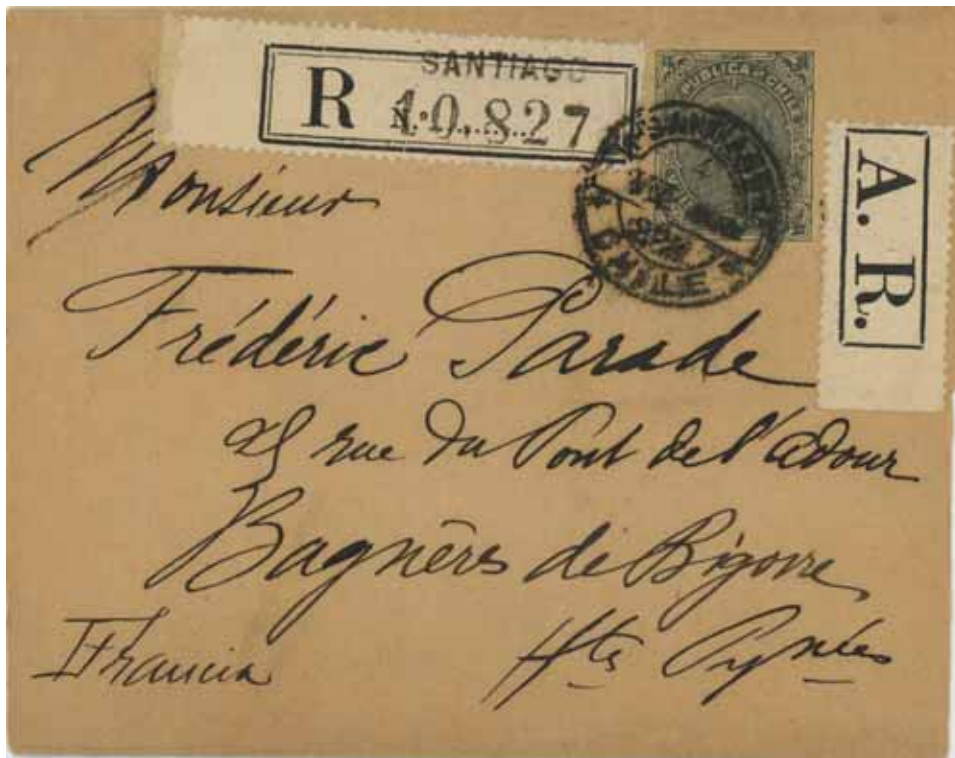 SANTIAGO
R No. 10,827
REPUBLICA DE CHILE
SANTIAGO
CHILE
A. R.
Monsieur
Frédéric Parade
25 rue du Pont de l'adour
Bagnères de Bigorre
Htes Pynées
Francia